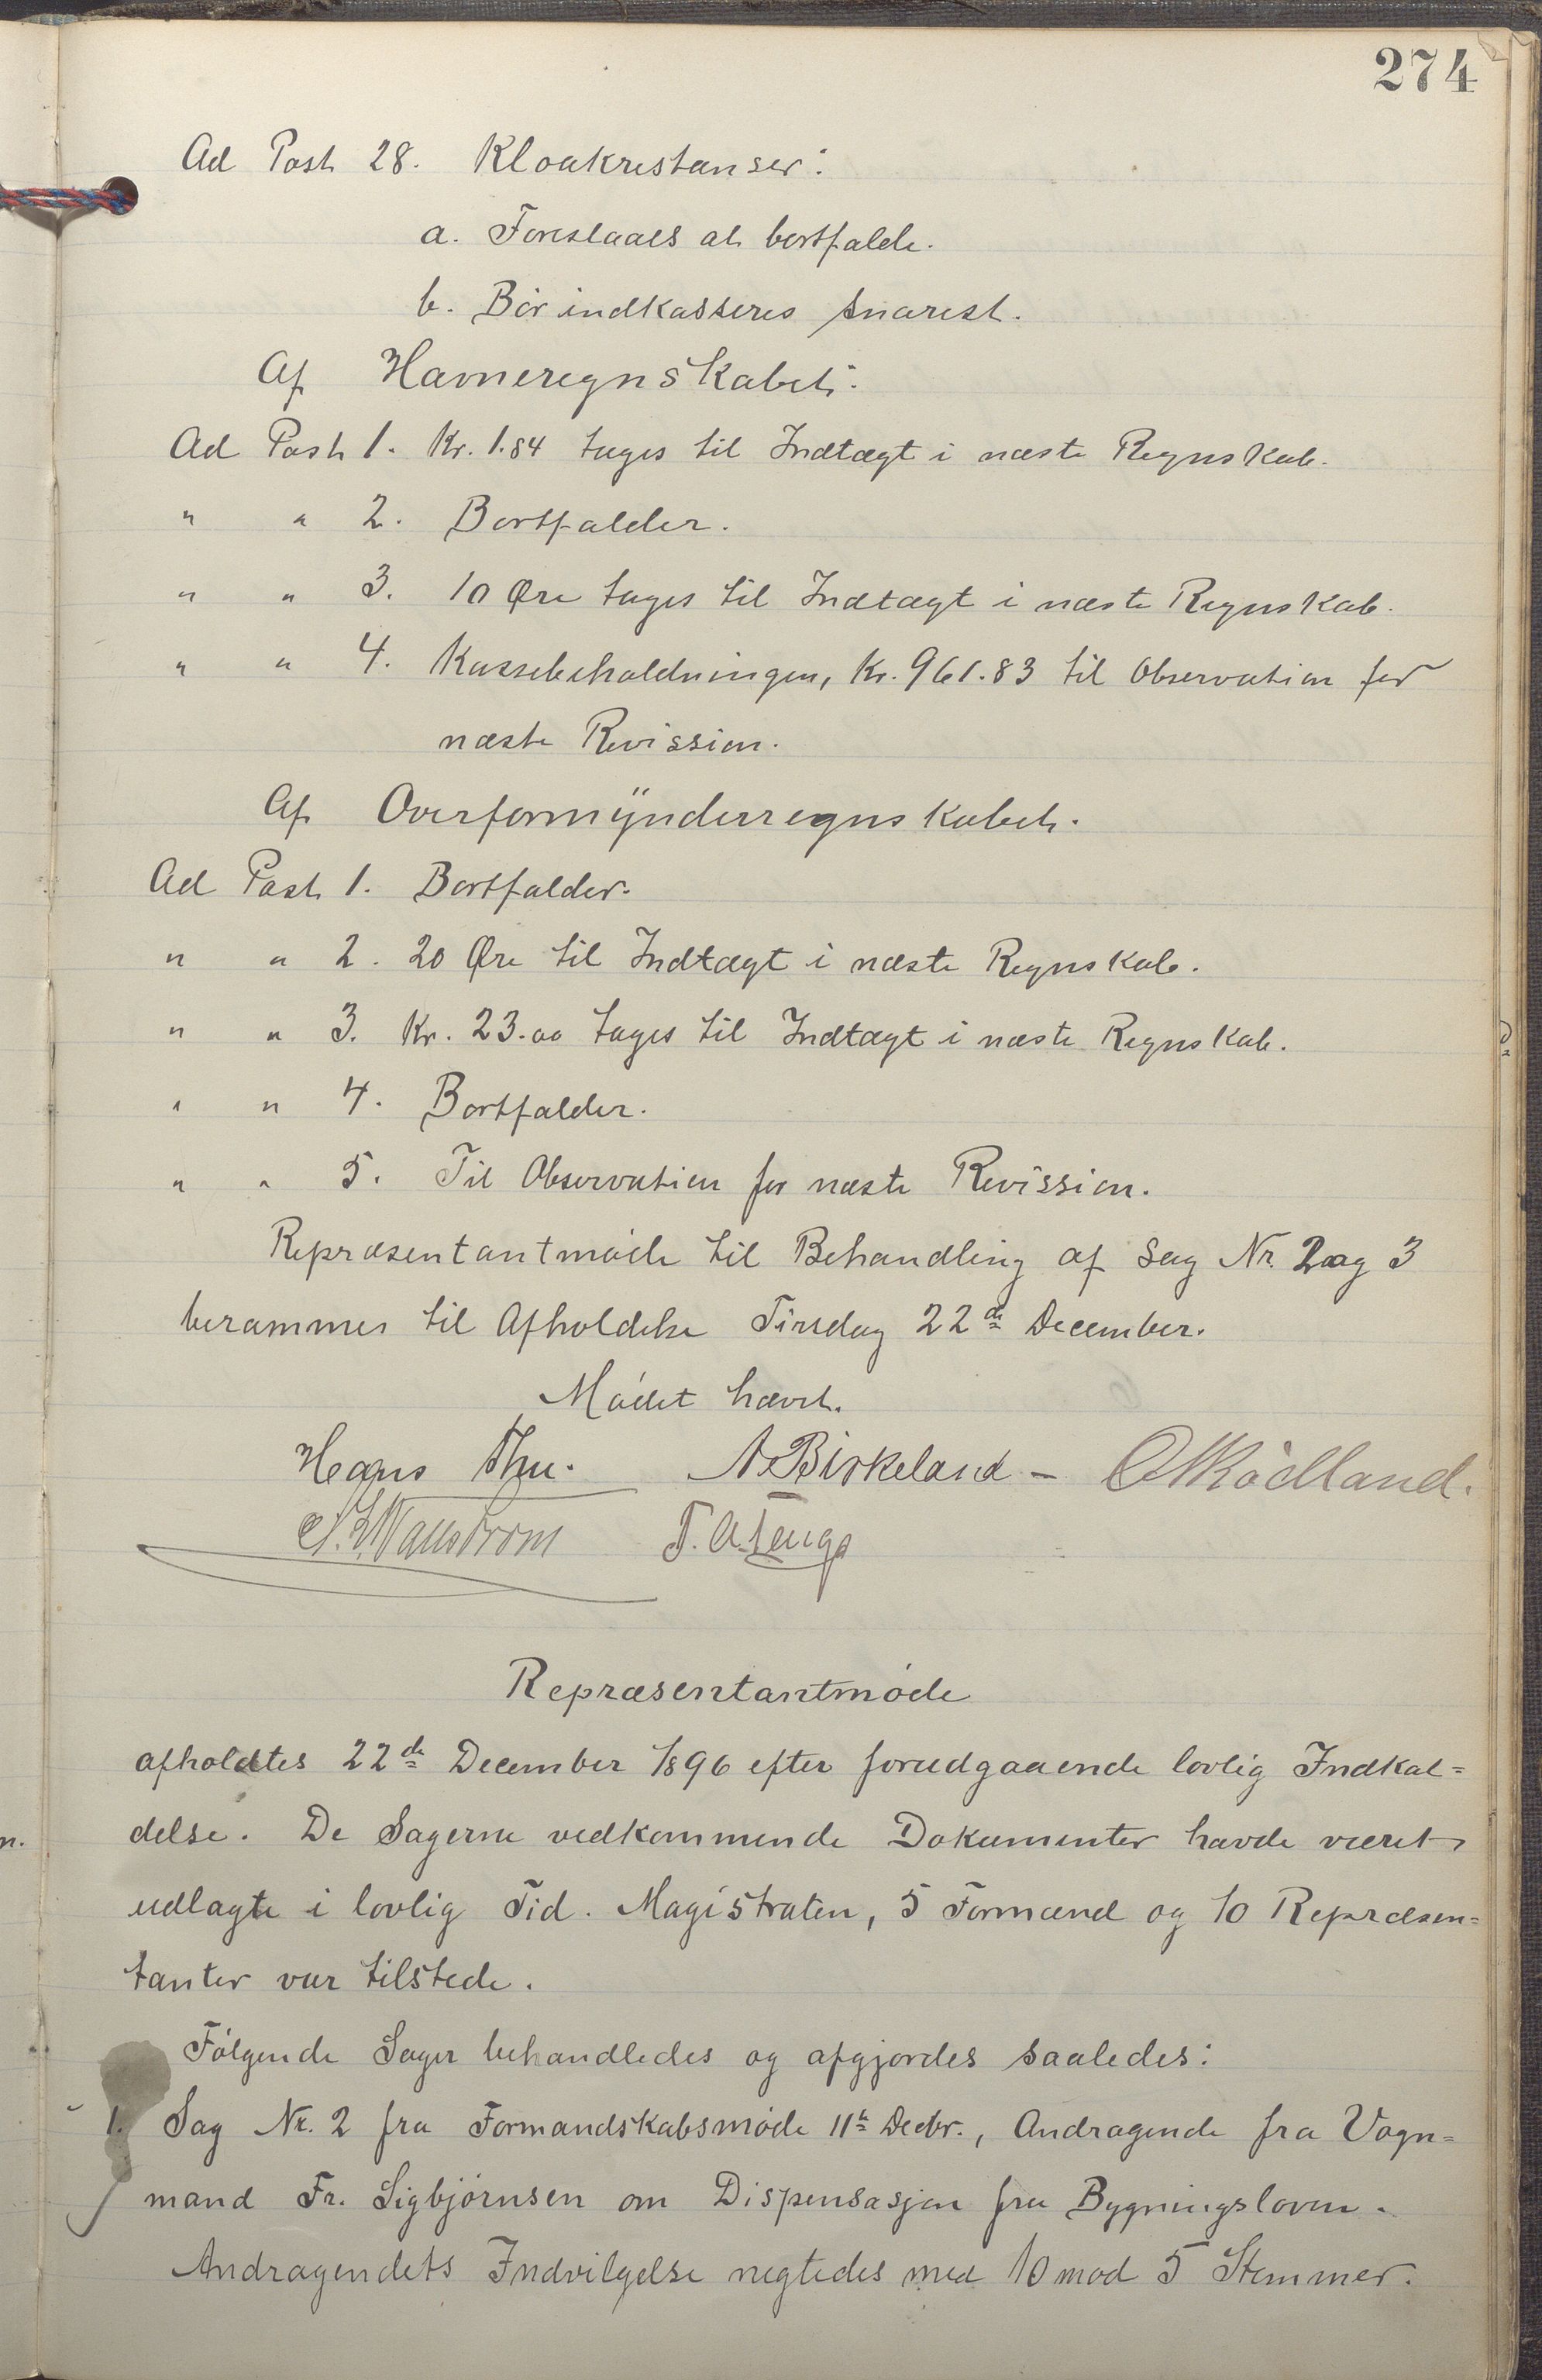 274
Ad Post 28. Kloakrestanser:
a. Foreslaaes at bortfalde.
b. Bör indkasseres snarest.
Af Havneregnskabet:
Ad Post 1. Kr. 1.84 tages til Indtægt i næste Regnskab.
" " 2. Bortfalder.
" " 3. 10 Øre tages til Indtægt i næste Regnskab.
" " 4. Kassebeholdningen, Kr. 961.83 til Observation for
næste Revission.
Af Overformÿnderregnskabet.
Ad Post 1. Bortfalder.
" " 2. 20 Øre til Indtægt i næste Regnskab.
" " 3. Kr. 23.00 tages til Indtægt i næste Regnskab.
" " 4. Bortfalder.
" " 5. Til Observation for næste Revission.
Repræsentantmøde til Behandling af Sag Nr. 2 og 3
berammes til Afholdelse Tirsdag 22de December.
Mødet hævet.
Hans Thu. A. Birkeland - O Rödland.
Wallstrom T. A. Lenge
Repræsentantmøde
afholdtes 22de December 1896 efter forudgaaende lovlig Indkal=
delse. De Sagerne vedkommende Dokumenter havde været
udlagte i lovlig Tid. Magistraten, 5 Formænd og 10 Repræsen=
tanter var tilstede.
Følgende Sager behandledes og afgjordes saaledes:
1. Sag Nr. 2 fra Formandskabsmøde 11te Decbr., Andragende fra Vogn=
mand Fr. Sigbjørnsen om Dispensasjon fra Bygningsloven.
Andragendets Indvilgelse negtedes med 10 mod 5 Stemmer.
n.